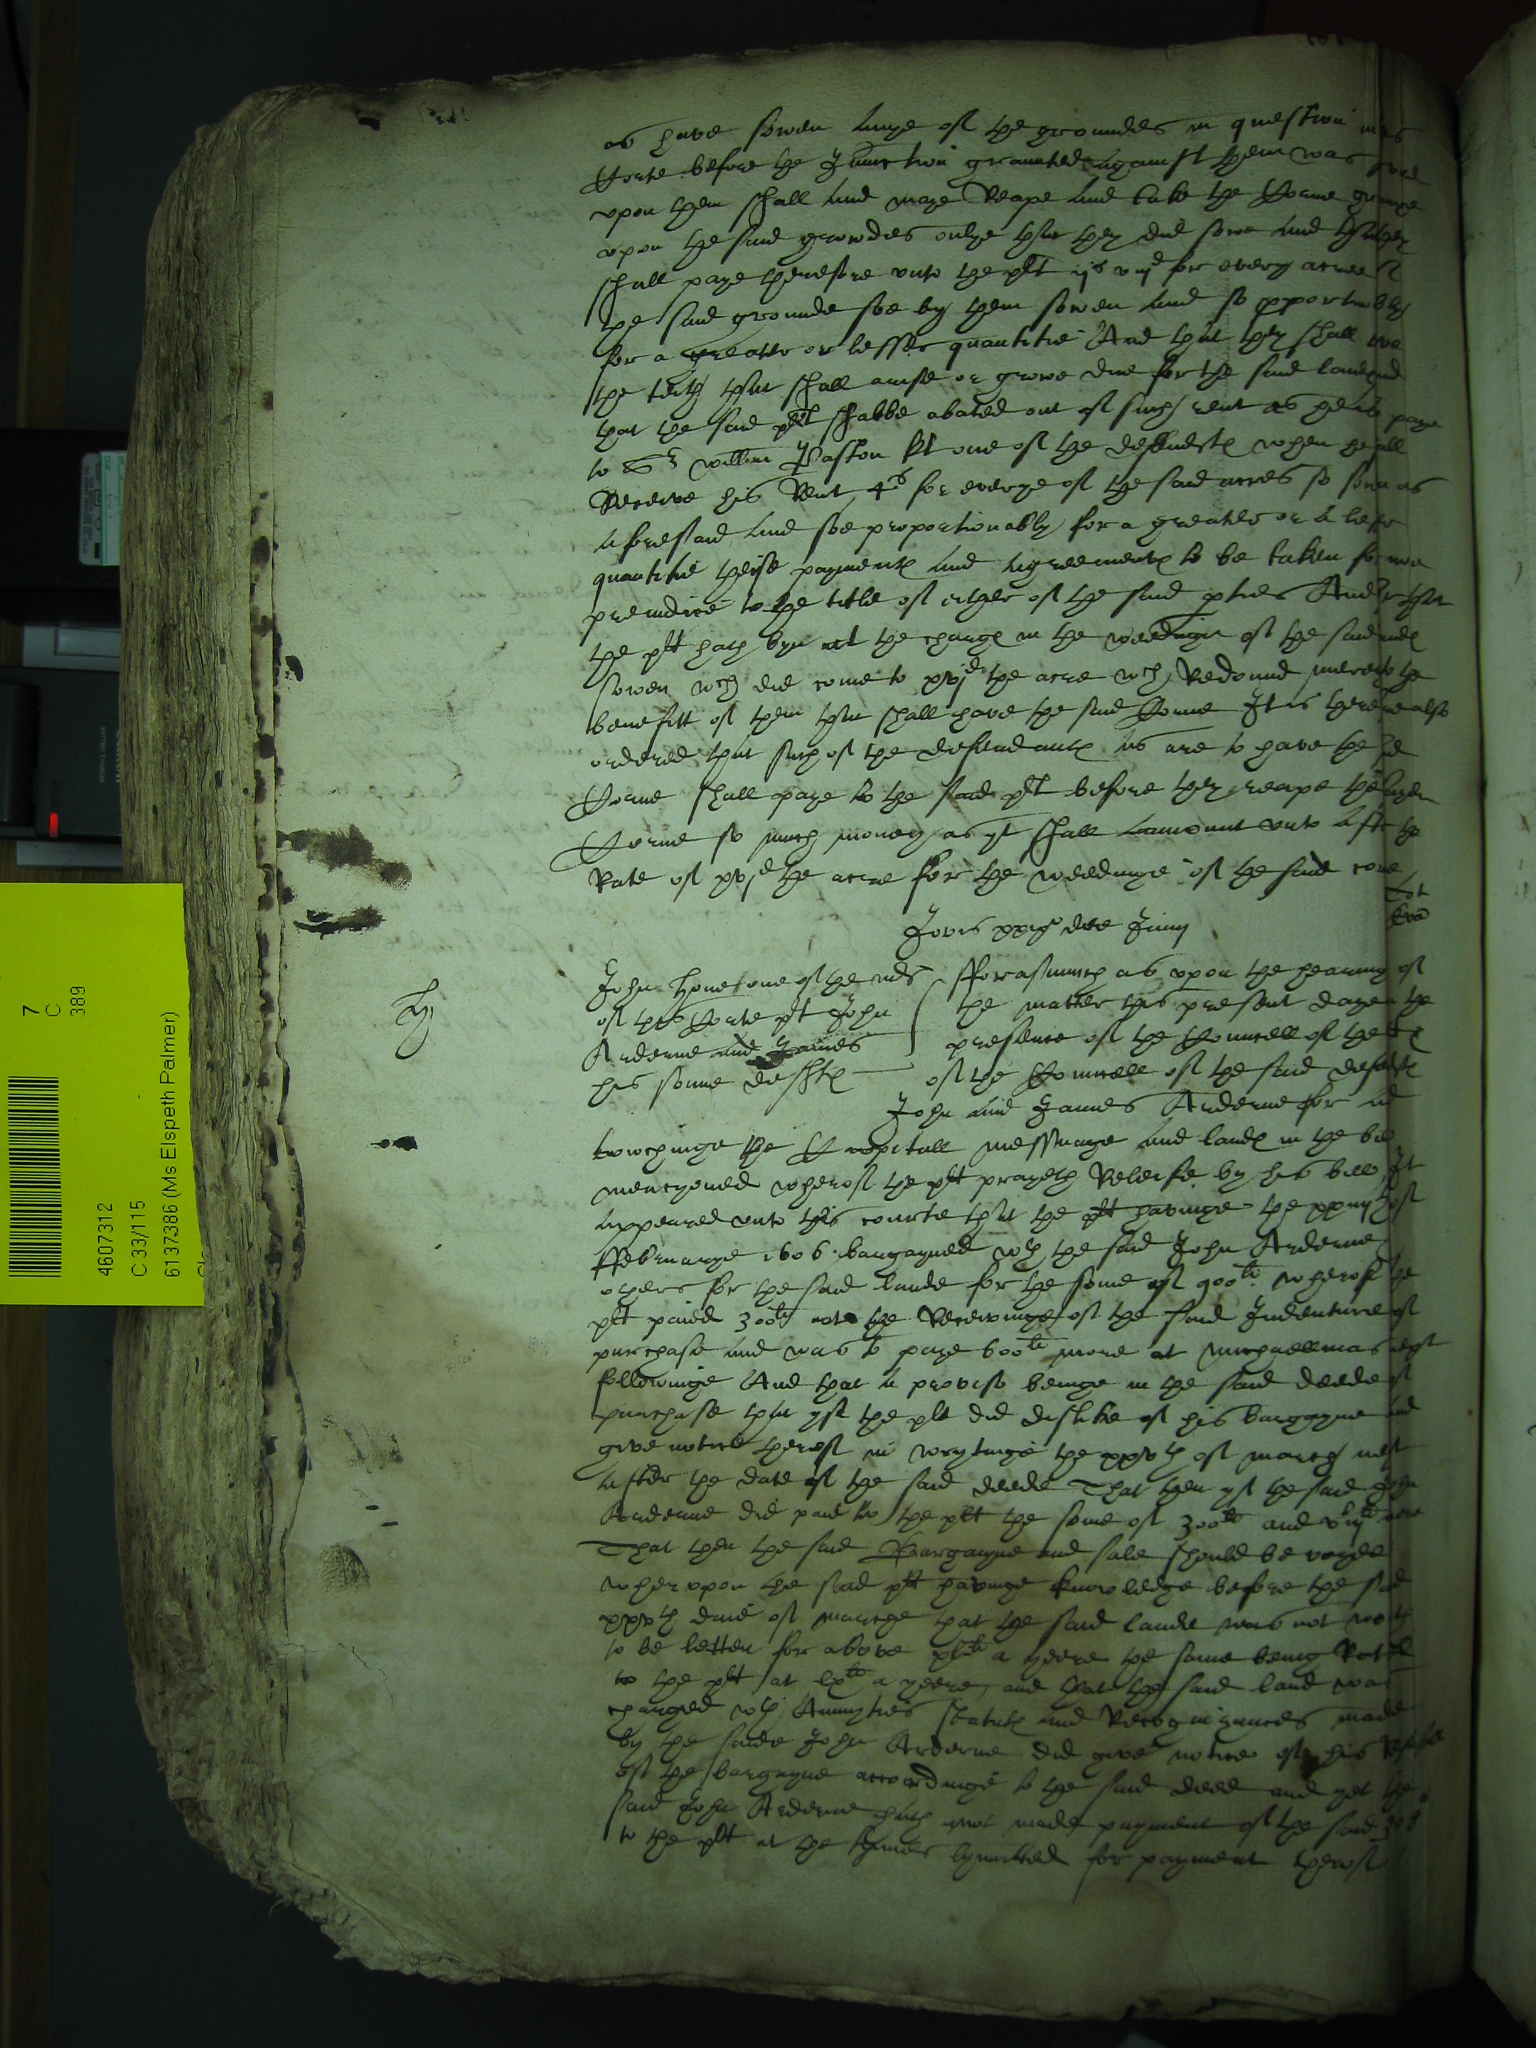 as have sowen anye of the groundes in question
Corte before the Iniunction graunted against them was
upon them shall and maye Reape and take the Corne growinge
upon the said growndes onlye that they did sowe and that they
shall paye therefore unto the plt ijs vijd for every acree
the said grounde soe by them sowen and so pportinably
for a greater or lesser quantitie And that they shall
the teith that shall arise or growe due for the said land and
that the said plt shalbe abated out of such rent as he paye
to Sr willm Paston kt one of the defendtes when he shall
Receive his Rent 4s for everye of the said acres so sown as
aforesaid and soe proportionably for a greater or a lesse
quantitie theise paymentes and agreementes to be taken for noe
preiudice to the title of either of the said pties And for that
the plt hath byn at the charge in the weedinge of the said
sowen wch did come to xvjd the acre wch Redound merely to the
benefitt of them that shall have the said Corne It is therefore also
ordered that such of the defendantes as are to have the
Corne shall paye to the said plt before they reape the
Corne so much money as yt shall amount unto after the
Rate of xvjd the acre for the weedinge of the said corne
Jovis die Junij
John hone one of the
of this Corte plt John
Arderne and James
his sonne deftes
fforasmuch as upon the hearing of
the matter this present daye in the
presence of the Councell of the
of the Councell of the said deftes
John and James Arderne for
towchinge the Capitall messuage and landes in the bill
mencyoned wherof the plt prayeth Releife by his bill It
appeared unto this courte that the plt havinge the of
ffebruarye 1606 bargayned wth the said John Arderne
others for the said lande for the some of 900li wherof the
plt paied 300li at the Receivinge of the said Indenture of
purchase and was to paye 600li more at michaellmas
followinge And that a proviso beinge in the said deede of
purchase that yf the plt did dislike of his bargayne and
give notice therof in wrytinge the xxvth of march next
after the date of the said deede That then yf the said John
Arderne did paie to the plt the some of 300li and more
That then the said Bargayne and sale should be voyde
wherupon the said plt havinge knowledge before the said
xxvth daie of marche that the said lande was not worth
to be letten for above xlli a yeere the same being Rated
to the plt at lxli a yeere, and that the said land was
charged wth Annyties statutes and Recognizances made
by the saide John Arderne did give notice of his
of the bargayne accordinge to the said deed and yet the
said John Arderne hath not made payment of the said 300
to the plt at the tymes lymitted for payment therof
7
C
389
4607312
C 33/115
6137386 (Ms Elspeth Palmer)